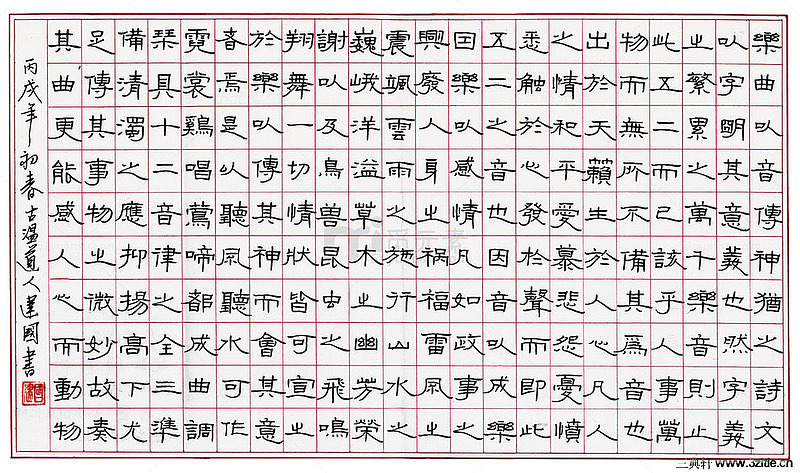 樂曲以音傳神猶之詩文
以字明其意義也然字義
之繁累之萬千樂音則止
此五二而已該乎人事萬
物而無所不備其爲音也
出於天籟生於人心凡人
之情和平愛慕悲怨憂憤
悉觸於心發於聲而即此
五二之音也因音以成樂
因樂以感情凡如政事之
興廢人身之禍福雷風之
震颯雲雨之施行山水之
巍峨洋溢草木之幽芳榮
謝以及鳥獸昆虫之飛鳴
翔舞一切情狀皆可宣之
於樂以傳其神而會其意
者焉是以聽風聽水可作
霓裳鷄唱鶯啼都成曲調
琴具十二音律之全三準
備清濁之應抑揚高下尤
足傳其事物之微妙故奏
其曲更能感人心而動物
丙戌年初春古溫道人建國書
觅元素
三典軒 www.3zide.cn